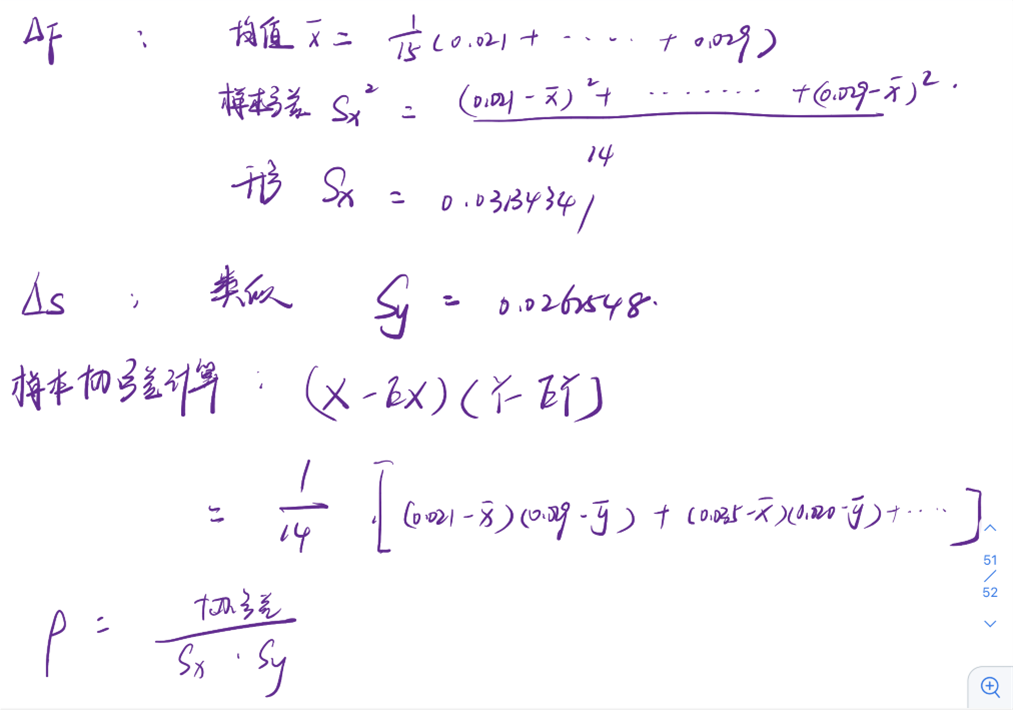 ΔF : 均值 x̄ = 1/15 (0.021 + ······ + 0.029)
样本方差 Sx² = ((0.021 - x̄)² + ········ + (0.029 - x̄)²) / 14.
开方 Sx = 0.0313434
ΔS : 类似 Sy = 0.0262548.
样本协方差计算 : (X - EX)(Y - EY)
= 1/14 · [(0.021 - x̄)(0.029 - ȳ) + (0.035 - x̄)(0.020 - ȳ) + ····]
ρ = 协方差 / (Sx · Sy)
51
/
52